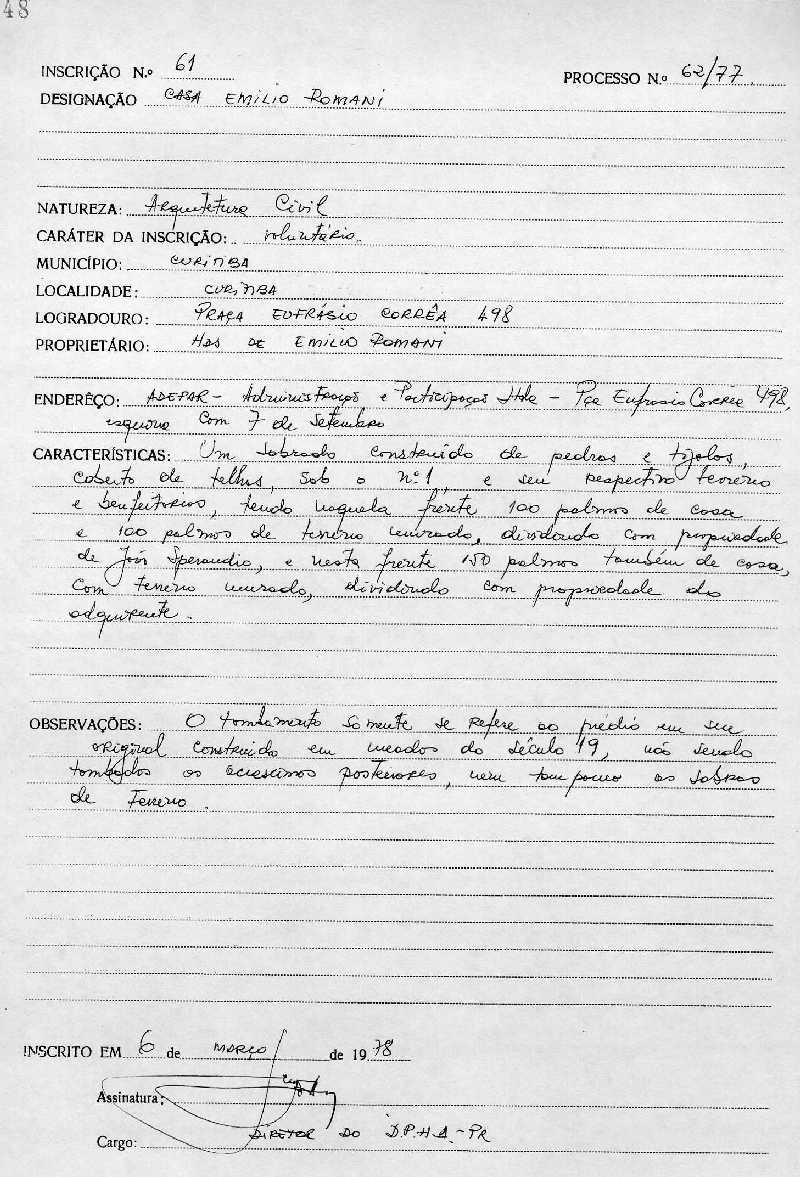 48
INSCRIÇÃO N.º 61 PROCESSO N.º 62/77
DESIGNAÇÃO CASA EMILIO ROMANI
NATUREZA: Arquitetura Civil
CARÁTER DA INSCRIÇÃO: voluntário
MUNICÍPIO: CURITIBA
LOCALIDADE: CURITIBA
LOGRADOURO: PRAÇA EUFRÁSIO CORRÊA 498
PROPRIETÁRIO: Hds DE EMILIO ROMANI
ENDERÊÇO: ADEPAR - Administração e Participações Ltda - Pça Eufrasio Correia 498,
esquina com 7 de Setembro
CARACTERÍSTICAS: Um sobrado construído de pedras e tijolos,
coberto de telhas, sob o nº 1, e seu respectivo terreno
e benfeitorias, tendo naquela frente 100 palmos de casa
e 100 palmos de terreno murado, dividindo com propriedade
de João Sperandio, e nesta frente 150 palmos também de casa,
com terreno murado, dividindo com propriedade do
adquirente.
OBSERVAÇÕES: O tombamento somente se refere ao prédio em seu
original construido em meados do século 19, não sendo
tombados os acrescimos posteriores, nem tam pouco as sobras
de terreno.
INSCRITO EM 6 de MARÇO de 1978
Assinatura:
Cargo: DIRETOR DO D.P.H.A.-PR